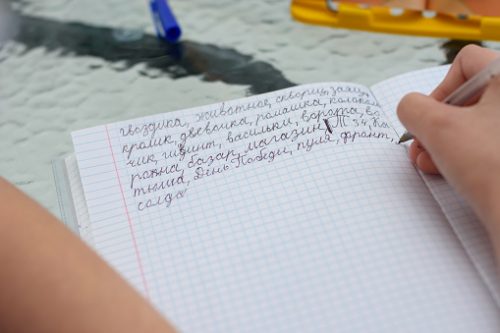 гвоздика, животное, скворец, заяц,
кролик, дневник, ромашка, колоколь
чик, гиацинт, васильки, ворота, во
рона, базар, магазин, Т-34, Ка
тюша, День Победы, пуля, фронт,
солда